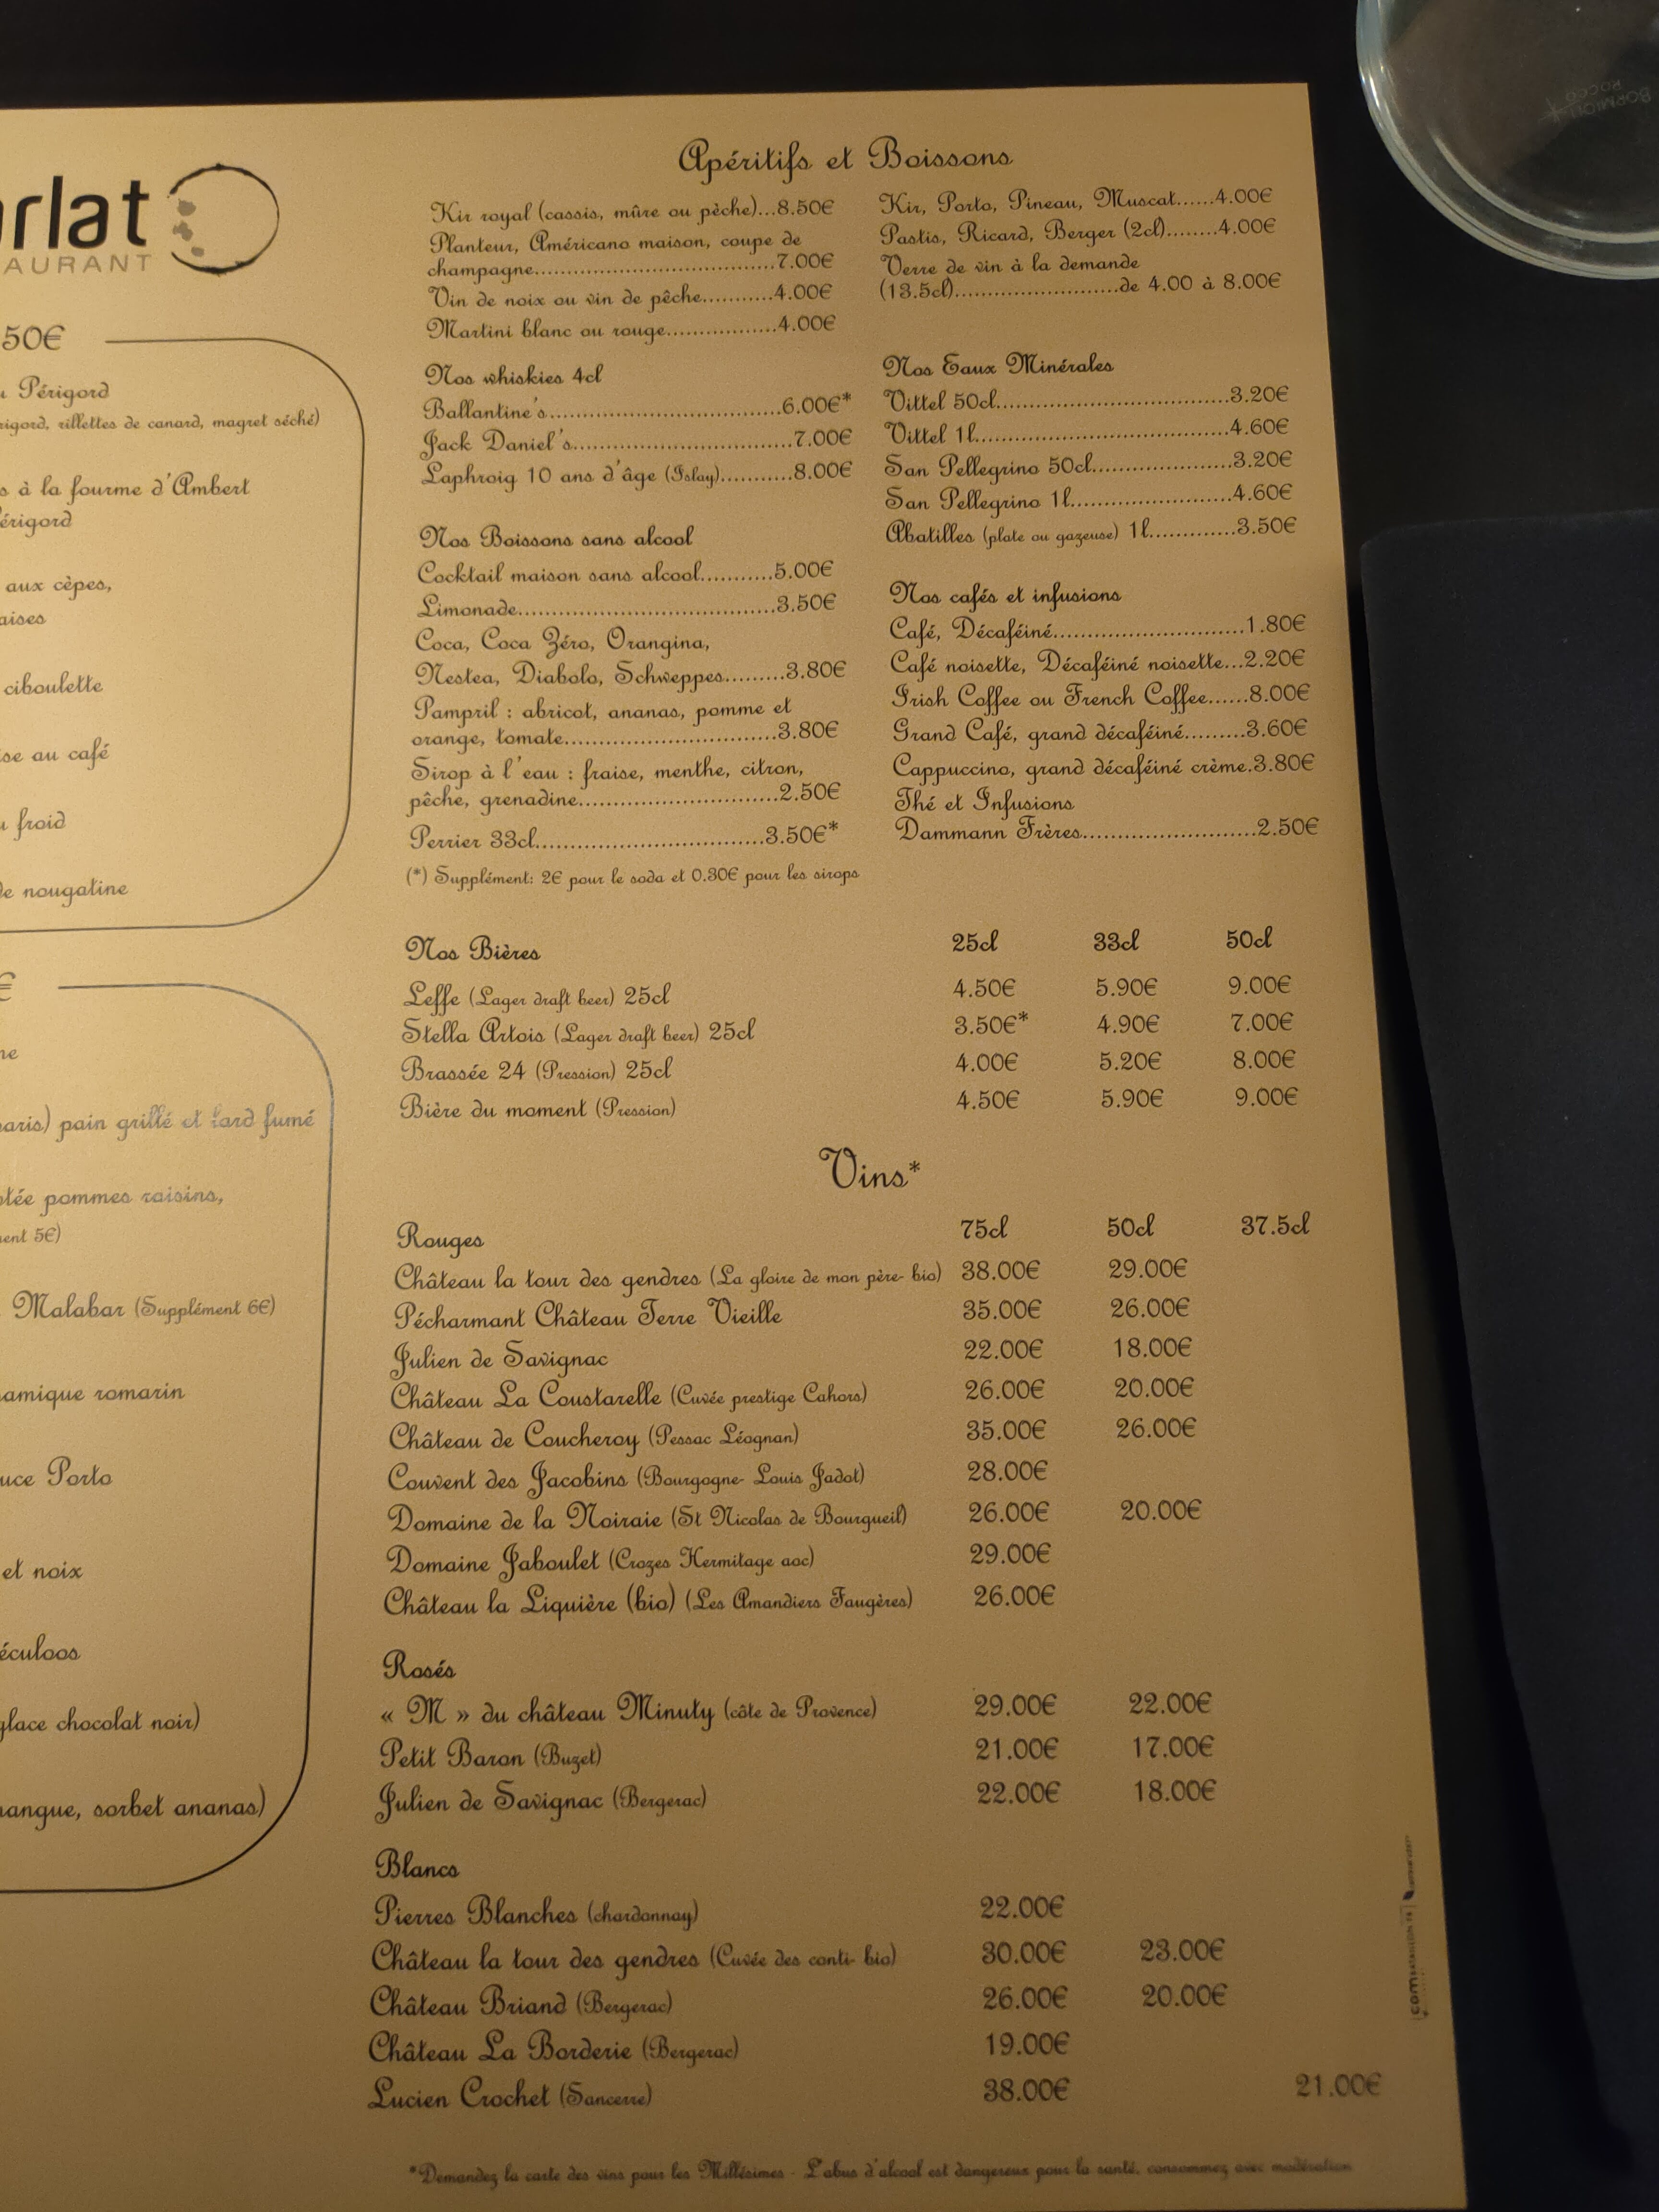 rlat
AURANT
50€
Périgord
rigord, rillettes de canard, magret séché)
à la fourme d'Ambert
érigord
aux cèpes,
aises
ciboulette
se au café
froid
de nougatine
€
aris) pain grillé et lard fumé
tée pommes raisins,
ent 5€)
Malabar (Supplément 6€)
amique romarin
uce Porto
et noix
éculoos
glace chocolat noir)
angue, sorbet ananas)
Apéritifs et Boissons
Kir royal (cassis, mûre ou pèche)...8.50€
Planteur, Américano maison, coupe de
champagne...................................7.00€
Vin de noix ou vin de pêche...........4.00€
Martini blanc ou rouge.................4.00€
Nos whiskies 4cl
Ballantine's..................................6.00€*
Jack Daniel's................................7.00€
Laphroig 10 ans d'âge (Islay)...........8.00€
Nos Boissons sans alcool
Cocktail maison sans alcool...........5.00€
Limonade......................................3.50€
Coca, Coca Zéro, Orangina,
Nestea, Diabolo, Schweppes.........3.80€
Pampril : abricot, ananas, pomme et
orange, tomate...............................3.80€
Sirop à l'eau : fraise, menthe, citron,
pêche, grenadine.............................2.50€
Perrier 33cl..................................3.50€*
(*) Supplément: 2€ pour le soda et 0.30€ pour les sirops
Kir, Porto, Pineau, Muscat......4.00€
Pastis, Ricard, Berger (2cl)........4.00€
Verre de vin à la demande
(13.5cl).........................de 4.00 à 8.00€
Nos Eaux Minérales
Vittel 50cl..................................3.20€
Vittel 1l.....................................4.60€
San Pellegrino 50cl.....................3.20€
San Pellegrino 1l........................4.60€
Abatilles (plate ou gazeuse) 1l.............3.50€
Nos cafés et infusions
Café, Décaféiné............................1.80€
Café noisette, Décaféiné noisette...2.20€
Irish Coffee ou French Coffee......8.00€
Grand Café, grand décaféiné.........3.60€
Cappuccino, grand décaféiné crème.3.80€
Thé et Infusions
Dammann Frères..........................2.50€
Nos Bières 25cl 33cl 50cl
Leffe (Lager draft beer) 25cl 4.50€ 5.90€ 9.00€
Stella Artois (Lager draft beer) 25cl 3.50€* 4.90€ 7.00€
Brassée 24 (Pression) 25cl 4.00€ 5.20€ 8.00€
Bière du moment (Pression) 4.50€ 5.90€ 9.00€
Vins*
Rouges 75cl 50cl 37.5cl
Château la tour des gendres (La gloire de mon père- bio) 38.00€ 29.00€
Pécharmant Château Terre Vieille 35.00€ 26.00€
Julien de Savignac 22.00€ 18.00€
Château La Coustarelle (Cuvée prestige Cahors) 26.00€ 20.00€
Château de Coucheroy (Pessac Léognan) 35.00€ 26.00€
Couvent des Jacobins (Bourgogne- Louis Jadot) 28.00€
Domaine de la Noiraie (St Nicolas de Bourgueil) 26.00€ 20.00€
Domaine Jaboulet (Crozes Hermitage aoc) 29.00€
Château la Liquière (bio) (Les Amandiers Faugères) 26.00€
Rosés
« M » du château Minuty (côte de Provence) 29.00€ 22.00€
Petit Baron (Buzet) 21.00€ 17.00€
Julien de Savignac (Bergerac) 22.00€ 18.00€
Blancs
Pierres Blanches (chardonnay) 22.00€
Château la tour des gendres (Cuvée des conti- bio) 30.00€ 23.00€
Château Briand (Bergerac) 26.00€ 20.00€
Château La Borderie (Bergerac) 19.00€
Lucien Crochet (Sancerre) 38.00€ 21.00€
*Demandez la carte des vins pour les Millésimes - L'abus d'alcool est dangereux pour la santé, consommez avec modération
BORMIOLI
ROCCO